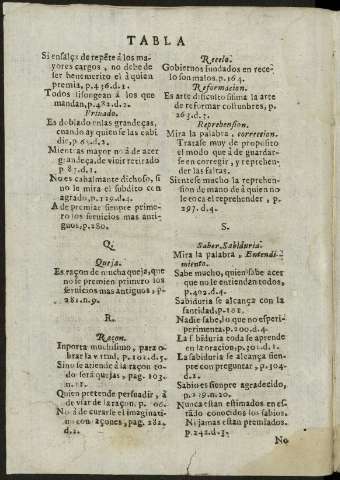 TABLA
Si ensalça de repẽte á los ma-
yores cargos, no debe de
ser benemerito el à quien
premia, p.436.d.1.
Todos lisongean á los que
mandan, p.482.d.2.
Priuado.
Es doblado en las grandeças,
cuando ay quien se las cabi
die, p.63.d.2.
Mientras mayor no á de acer
grandeça, de viuir retirado
p.87.d.1.
No es cabalmante dichoso, si
no le mira el subdito con
agrado, p.129.d.4.
A de premiar sienpre prime-
ro los seruicios mas anti-
guos, p.280.
Q.
Queja.
Es raçon de mucha queja, que
no se premien primero los
seruicios mas antiguos, p.
281.n.9.
R.
Raçon.
Inporta muchisimo, para o-
brar la virtud, p.101.d.5.
Sino se atiende à la raçon to
do será quejas, pag. 103.
n.11.
Quien pretende persuadir, á
de viar de la raçon, p.
No á de curarse el imaginati-
uo con raçones, pag. 282,
d.1.
Recelo.
Gobiernos fundados en rece-
lo son malos, p.164.
Reformacion.
Es arte dificultosisima la arte
de reformar costunbres, p.
263.d.5.
Reprehension.
Mira la palabra, correccion.
Tratase muy de proposito
el modo que á de guardar-
se en corregir, y reprehen-
der las faltas.
Sientese mucho la reprehen-
sion de mano de á quien no
le toca el reprehender, p.
297.d.4.
S.
Saber. Sabiduria.
Mira la palabra, Entendi-
miento.
Sabe mucho, quien sabe acer
que no le entiendan todos,
p.402.d.4.
Sabiduria se alcança con la
santidad, p.101.
Nadie sabe, lo que no esperi-
perimenta, p.200.d.4.
La sabiduria toda se aprende
en la oracion, p.201.d.4.
La sabiduria se alcança sien-
pre con preguntar, p.304.
d.1.
Sabio es sienpre agradecido,
p.219.n.20.
Nunca estan estimados en es-
tãdo conocidos los sabios.
Ni jamas estan premiados.
p.242.d.3.
No